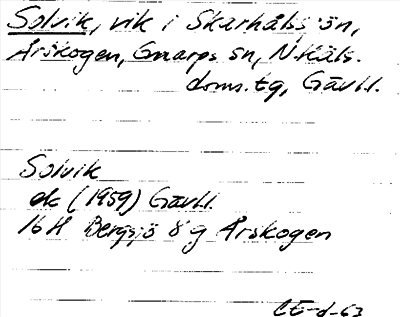 Solvik, vik i Skarhålsön,
Årskogen, Gnarps sn, N.Häls.
doms.tg, Gävl.l.
Solvik
ek (1959) Gävl.l.
16H Bergsjö 8 g Årskogen
CE-d-63